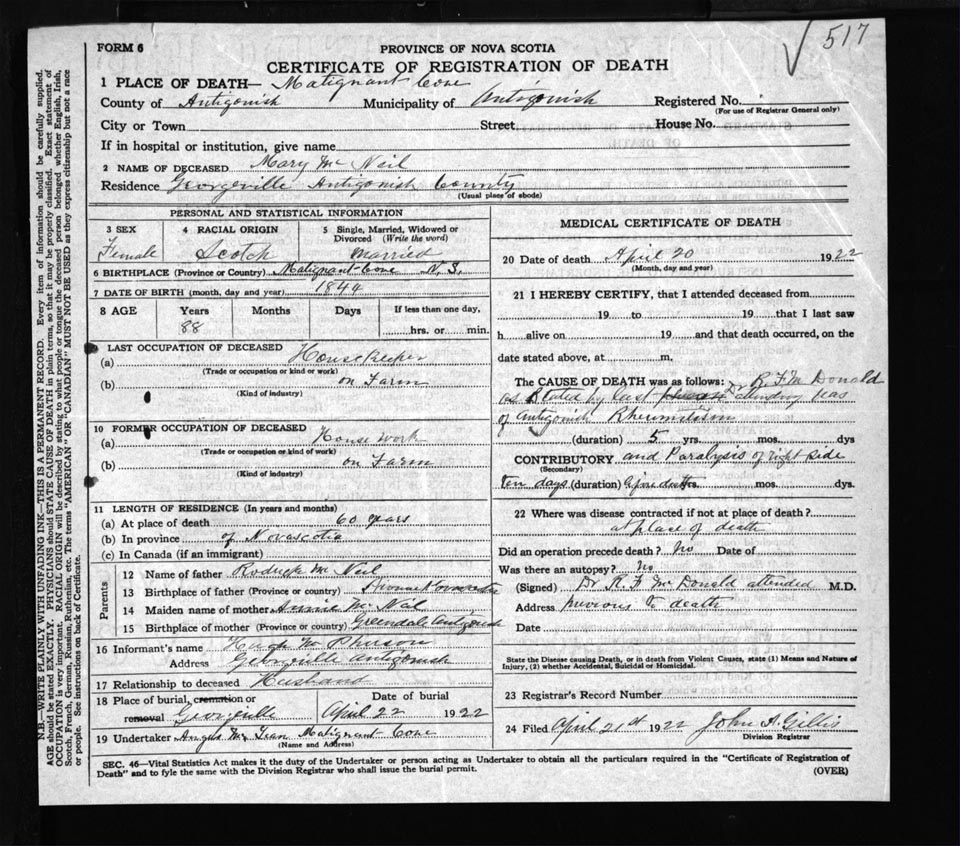 ✓ 517
FORM 6
PROVINCE OF NOVA SCOTIA
CERTIFICATE OF REGISTRATION OF DEATH
1 PLACE OF DEATH— Malignant Cove
County of Antigonish Municipality of Antigonish Registered No.
(For use of Registrar General only)
City or Town Street House No.
If in hospital or institution, give name
2 NAME OF DECEASED Mary Mc Neil
Residence Georgeville Antigonish County
(Usual place of abode)
PERSONAL AND STATISTICAL INFORMATION
3 SEX 4 RACIAL ORIGIN 5 Single, Married, Widowed or Divorced (Write the word)
Female Scotch Married
6 BIRTHPLACE (Province or Country) Malignant Cove N. S.
7 DATE OF BIRTH (month, day and year) 1844
8 AGE Years Months Days If less than one day,
88 hrs. or min.
LAST OCCUPATION OF DECEASED
(a) Housekeeper
(Trade or occupation or kind of work)
(b) on Farm
(Kind of industry)
10 FORMER OCCUPATION OF DECEASED
(a) House work
(Trade or occupation or kind of work)
(b) on Farm
(Kind of industry)
11 LENGTH OF RESIDENCE (In years and months)
(a) At place of death 60 years
(b) In province of Novascotia
(c) In Canada (if an immigrant)
Parents
12 Name of father Rodrick Mc Neil
13 Birthplace of father (Province or country)
14 Maiden name of mother Annie Mc Neil
15 Birthplace of mother (Province or country) Greendale Antigonish
16 Informant's name Hugh Mc
Address Georgville Antigonish
17 Relationship to deceased Husband
18 Place of burial, cremation or removal Georgville
Date of burial
April 22 1922
19 Undertaker Angus Mc Lean Malignant Cove
(Name and Address)
MEDICAL CERTIFICATE OF DEATH
20 Date of death April 20 1922
(Month, day and year)
21 I HEREBY CERTIFY, that I attended deceased from
19 to 19 that I last saw
h alive on 19 and that death occurred, on the
date stated above, at m.
The CAUSE OF DEATH was as follows: Dr R. F Mc Donald
as stated by last attending was
of Antigonish Rheumitism
(duration) 5 yrs. mos. dys
CONTRIBUTORY and Paralysis of right side
(Secondary)
ten days (duration) before death yrs. mos. dys.
22 Where was disease contracted if not at place of death?
at place of death
Did an operation precede death? No Date of
Was there an autopsy? No
(Signed) Dr R. F Mc Donald attended M.D.
Address previous to death
Date
State the Disease causing Death, or in death from Violent Causes, state (1) Means and Nature of
Injury, (2) whether Accidental, Suicidal or Homicidal.
23 Registrar's Record Number
24 Filed April 21st 1922 John A. Gillis
Division Registrar
SEC. 46—Vital Statistics Act makes it the duty of the Undertaker or person acting as Undertaker to obtain all the particulars required in the "Certificate of Registration of
Death" and to fyle the same with the Division Registrar who shall issue the burial permit.
(OVER)
N.B.—WRITE PLAINLY WITH UNFADING INK—THIS IS A PERMANENT RECORD. Every item of information should be carefully supplied.
AGE should be stated EXACTLY. PHYSICIANS should STATE CAUSE OF DEATH in plain terms, so that it may be properly classified. Exact statement of
OCCUPATION is very important. RACIAL ORIGIN will be described by stating to what people or tongue the deceased person belonged, whether English, Irish,
Scotch, French, German, Russian, Ruthenian, etc. The terms "AMERICAN" or "CANADIAN" MUST NOT BE USED as they express citizenship but not a race
or people. See instructions on back of Certificate.